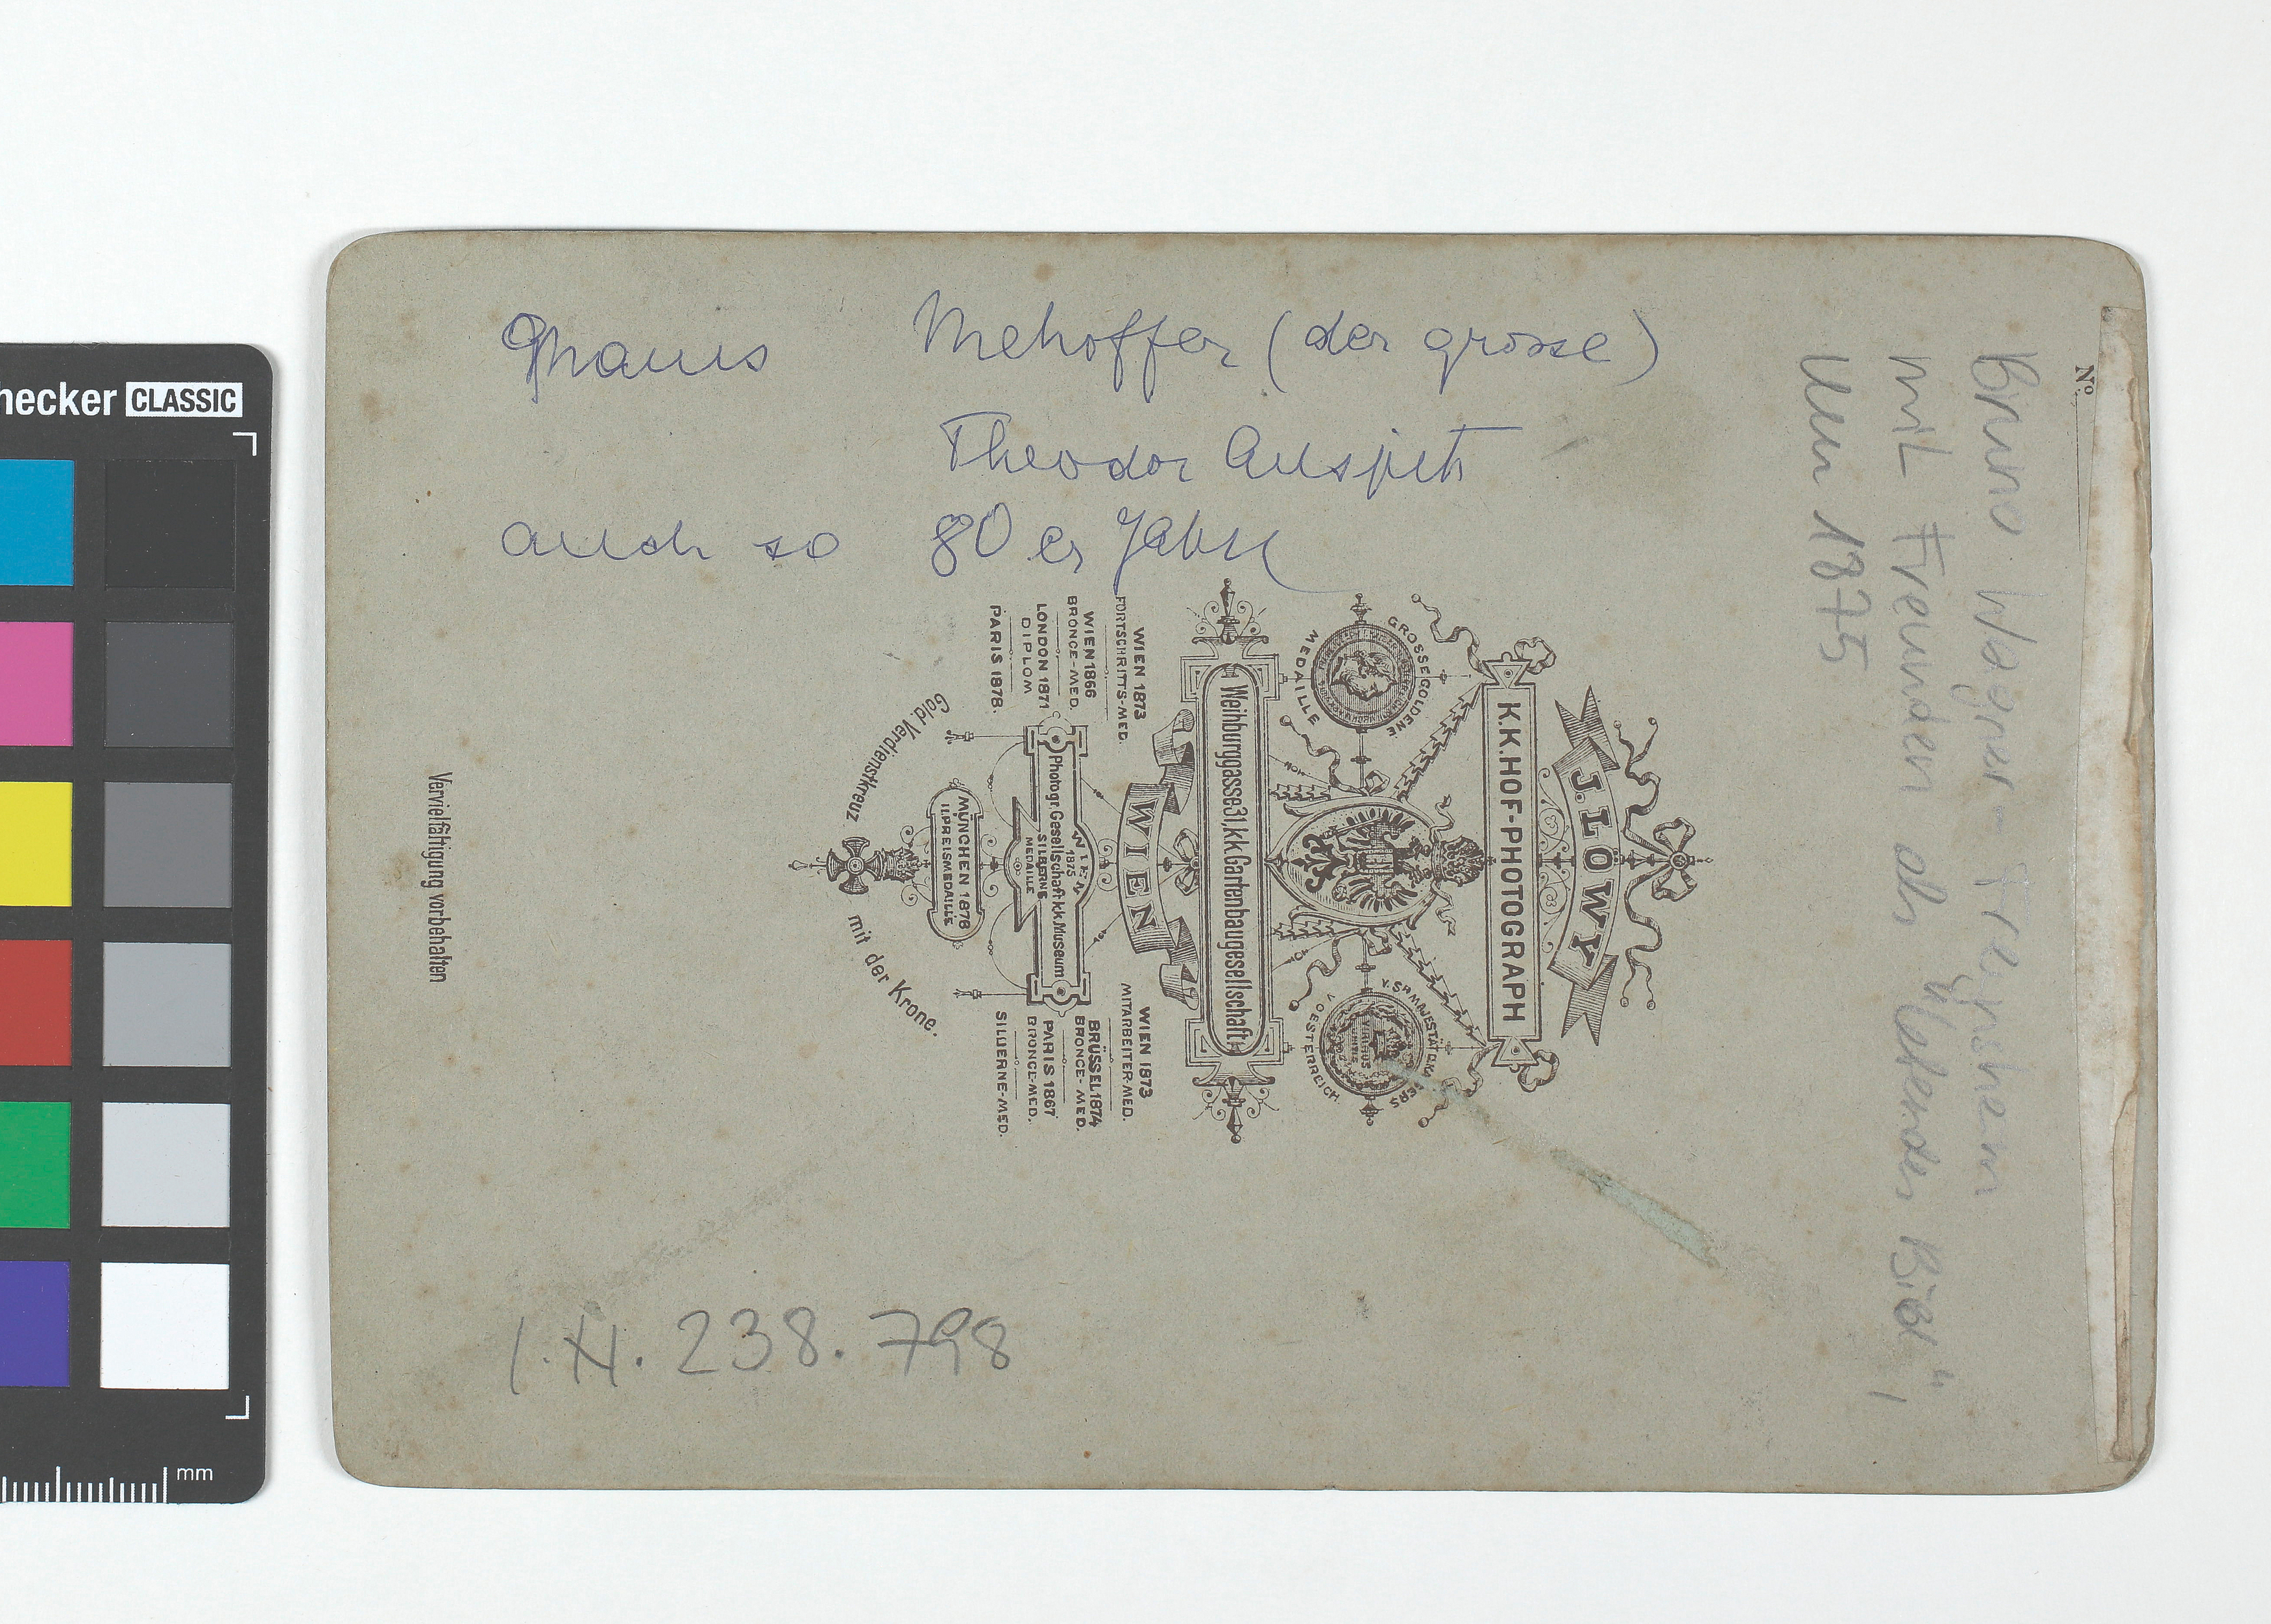 Mehoffer (der grosse)
Theodor Auspitz
auch so 80 er Jahre
Bruno Wagner - Freynsheim
mit Freunden als "lebendes Bild",
um 1875
No
J. LÖWY
K.K. HOF-PHOTOGRAPH
GROSSE GOLDENE
MEDAILLE
V. SR MAJESTÄT D. KAISERS
V. OESTERREICH
VIRIBUS
UNITIS
Weihburggasse 31, k.k. Gartenbaugesellschaft
WIEN
WIEN 1873
FORTSCHRITTS-MED.
WIEN 1866
BRONCE-MED.
LONDON 1871
DIPLOM
PARIS 1878.
WIEN 1873
MITARBEITER-MED.
BRÜSSEL 1874
BRONCE-MED.
PARIS 1867
BRONCE-MED.
SILBERNE-MED.
WIEN
1875
Photogr. Gesellschaft k.k. Museum
SILBERNE
MEDAILLE
MÜNCHEN 1876
II. PREISMEDAILLE
Gold. Verdienstkreuz mit der Krone.
Vervielfältigung vorbehalten
I.N. 238.798
hecker CLASSIC
mm